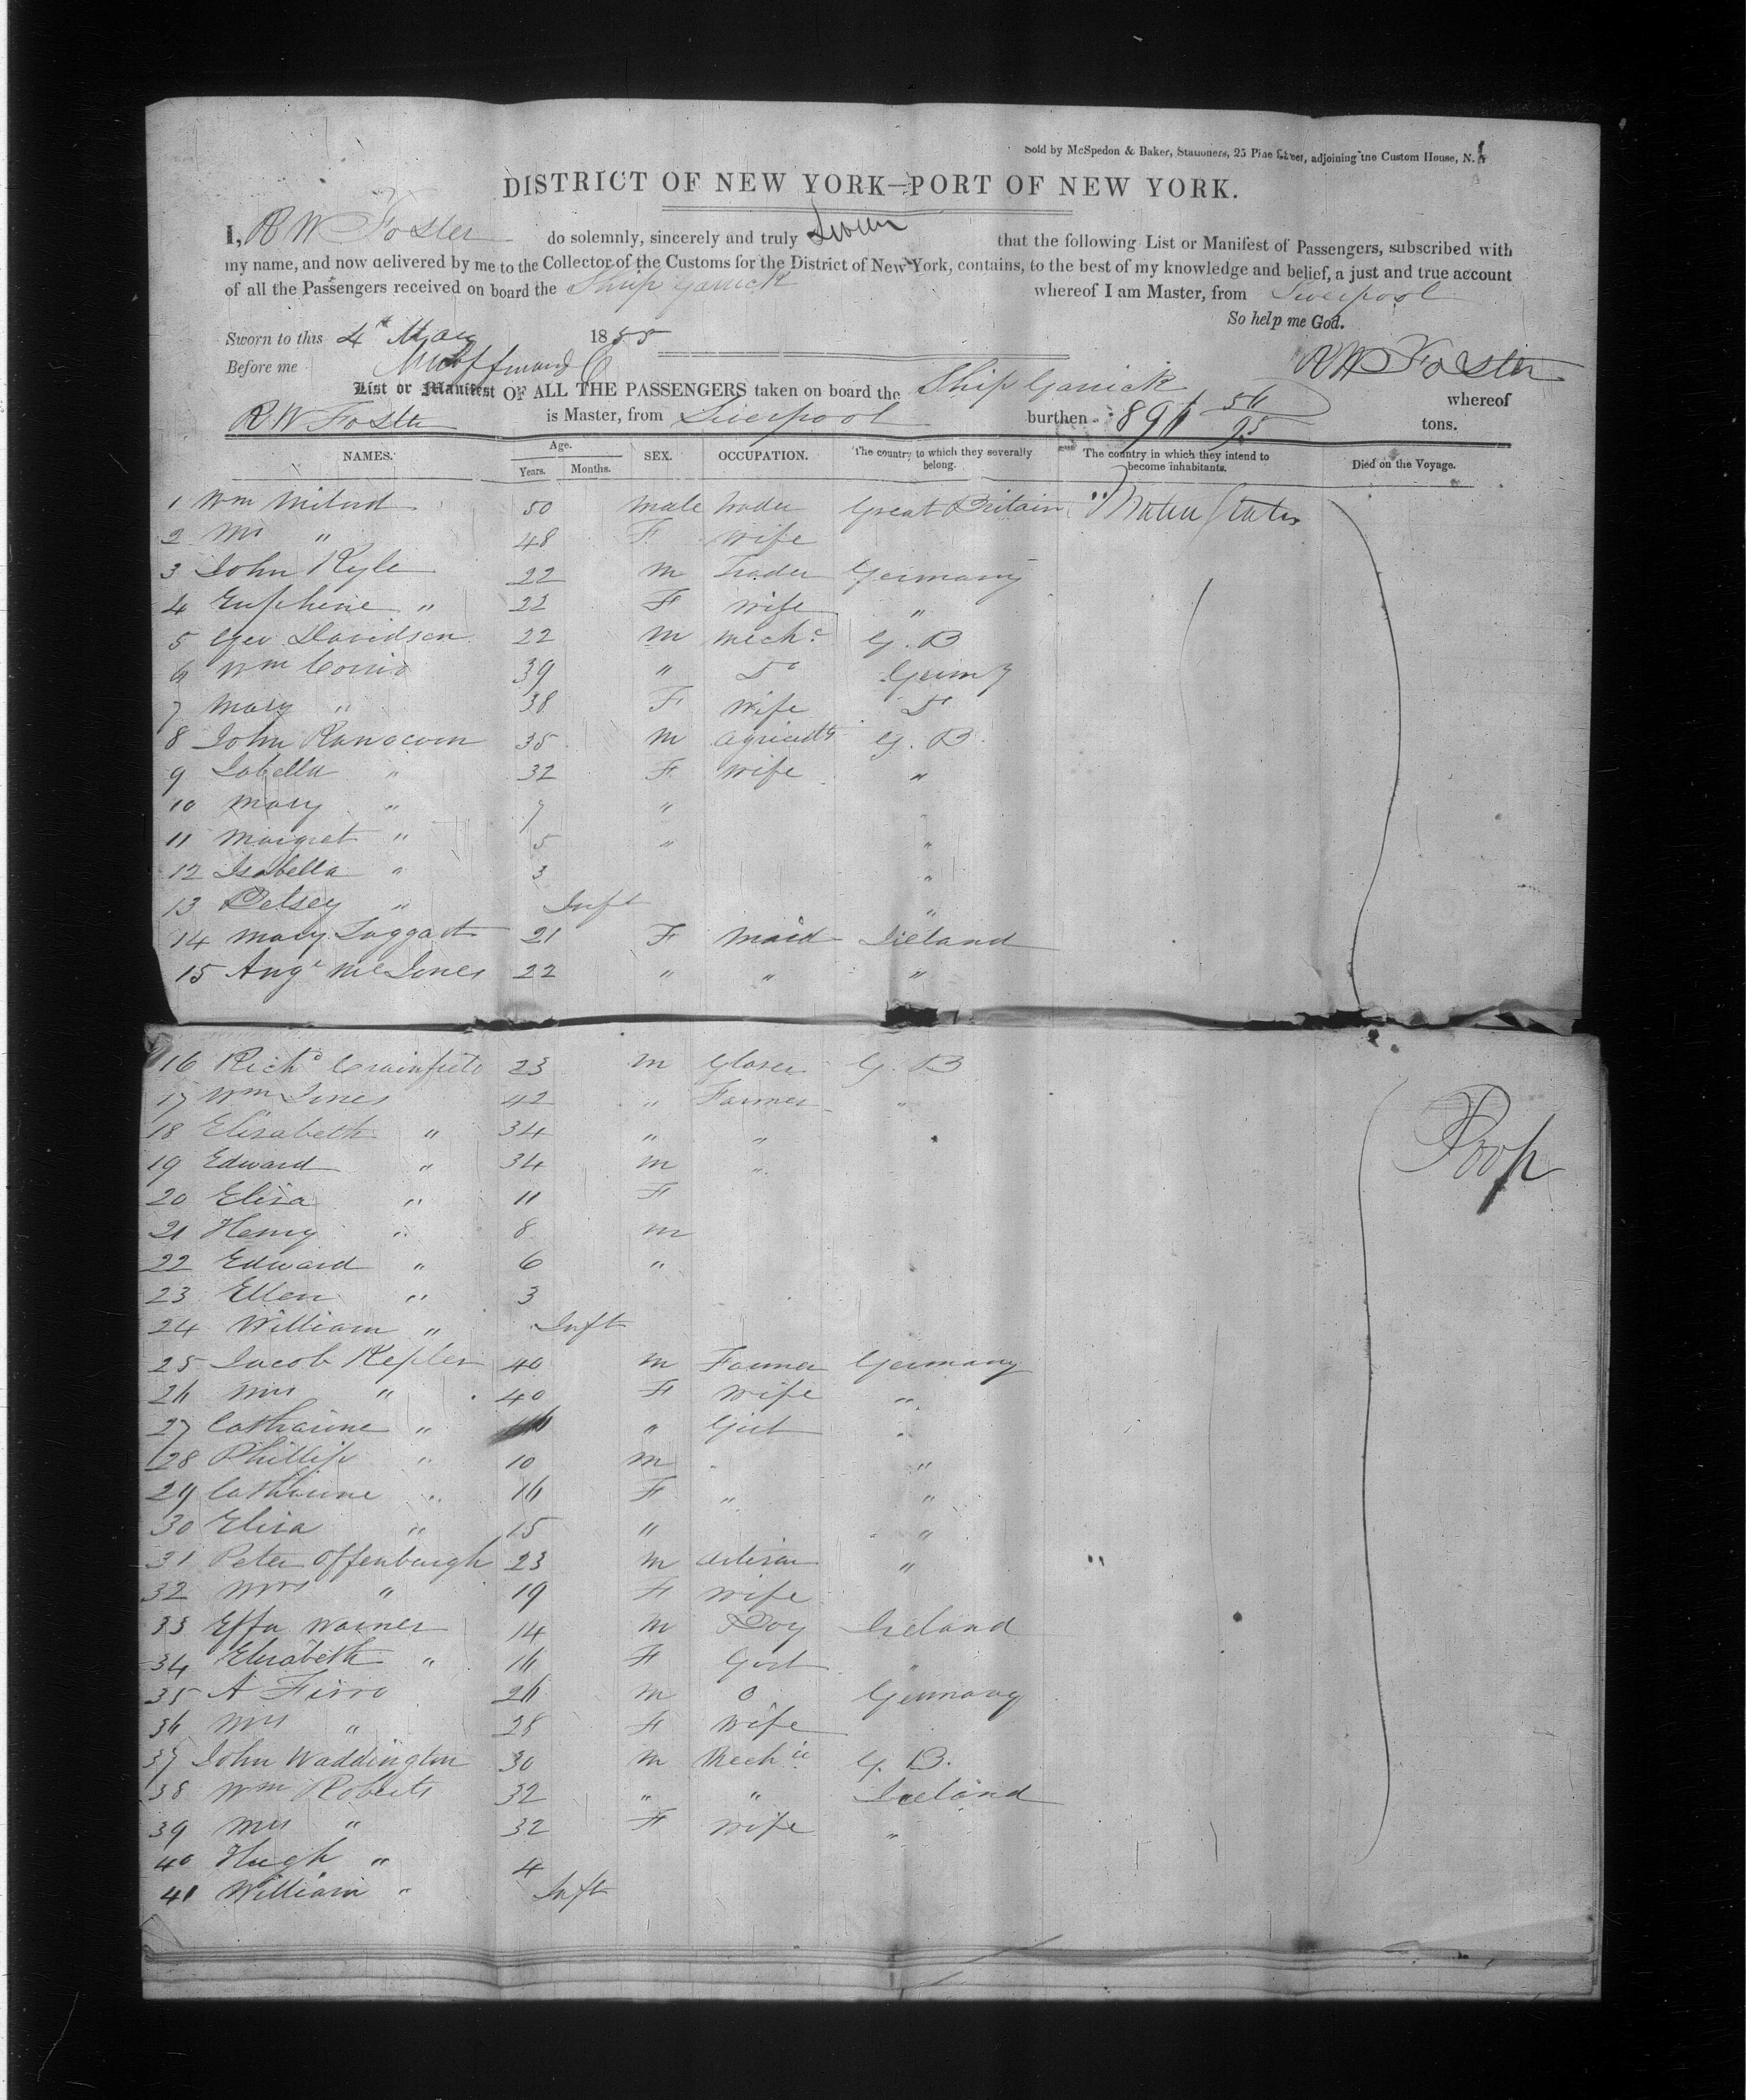 Sold by McSpedon & Baker, Stationers, 25 Pine Street, adjoining the Custom House, N.Y.
DISTRICT OF NEW YORK—PORT OF NEW YORK.
I, R W Foster do solemnly, sincerely and truly Swear that the following List or Manifest of Passengers, subscribed with
my name, and now delivered by me to the Collector of the Customs for the District of New York, contains, to the best of my knowledge and belief, a just and true account
of all the Passengers received on board the Ship Garrick whereof I am Master, from Liverpool
So help me God.
Sworn to this 4th May 1855
Before me R W Foster
List or Manifest OF ALL THE PASSENGERS taken on board the Ship Garrick whereof
R W Foster is Master, from Liverpool burthen 896 56/95 tons.
NAMES. Age. Years. Months. SEX. OCCUPATION. The country to which they severally belong. The country in which they intend to become inhabitants. Died on the Voyage.
1 Wm 50 male Trader Great Britain United States
2 Mrs " 48 F wife
3 John Kyle 22 m Trader Germany
4 Euphene " 22 F wife "
5 Geo Davidson 22 m mechc G. B
6 Wm 39 " Do Germy
7 Mary " 38 F Wife Do
8 John 35 m G. B.
9 Isbella " 32 F wife "
10 Mary " 7 "
11 Margret " 5 " "
12 Isabella " 3 "
13 Betsey " Inft "
14 Mary Taggart 21 F Maid Ireland
15 22 " " "
16 Richd 23 m G. B
17 Wm Jones 42 " Farmer "
18 Elisabeth " 34 " "
19 Edward " 34 m "
20 Elisa " 11 F
21 Henry " 8 m
22 Edward " 6 "
23 Ellen " 3
24 William " Inft
25 Jacob Kepler 40 m Farmer Germany
26 Mrs " 40 F Wife "
27 Catharine " " Girl "
28 Phillip " 10 m "
29 Catharine " 16 F " "
30 Elisa " 15 " "
31 Peter Offenburgh 23 m Artisan " "
32 Mrs " 19 F Wife
33 Effa Warner 14 m Boy Ireland
34 Elisabeth " 16 F Girl "
35 A Firro 26 m 0 Germany
36 Mrs " 28 F Wife
37 John Waddington 30 m Mechic G. B.
38 Wm Roberts 32 " " Ireland
39 Mrs " 32 F wife "
40 Hugh " 4
41 William " Inft
Poop